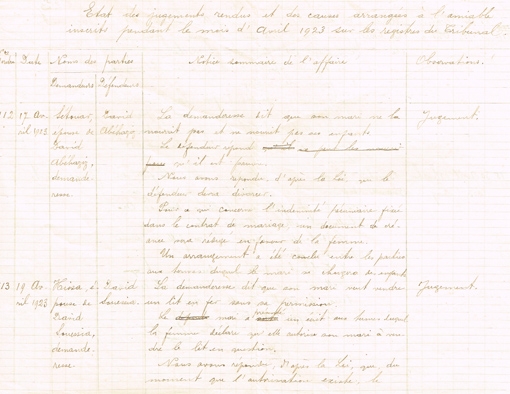 Etat des jugements rendus et des causes arrangées à l'amiable
inscrits pendant le mois d'Avril 1923 sur les registres du Tribunal.
Date Noms des parties Notice sommaire de l'affaire Observations.
Demandeurs Défendeurs
12 17 Avril 1923
épouse de David demanderesse
David
La demanderesse dit que son mari ne la
nourrit pas et ne nourrit pas ses enfants.
Le défendeur répond
qu'il est pauvre.
Nous avons répondu, d'après la loi, que le
défendeur devra divorcer.
Pour ce qui concerne l'indemnité pécuniaire fixée
dans le contrat de mariage, un document de
sera rédigé en faveur de la femme.
Un arrangement a été conclu entre les parties
aux termes duquel le mari se chargera des enfants.
Jugement.
13 19 Avril 1923
épouse de David demanderesse
David
La demanderesse dit que son mari veut vendre
un lit en fer sans sa permission.
Le mari a un écrit aux termes duquel
la femme déclare qu'elle autorise son mari à vendre
le lit en question.
Nous avons répondu, d'après la loi, que, du
moment que l'autorisation existe, le
Jugement.